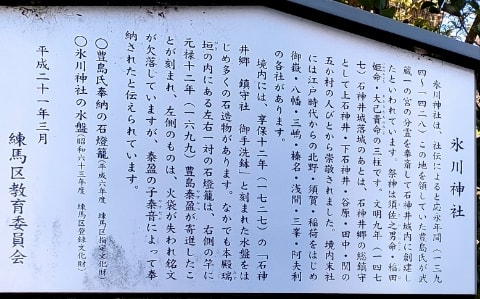 氷川神社
氷川神社は、社伝によると応永年間(一三九
四～一四二八)この地を領していた豊島氏が武
蔵一の宮の分霊を奉斎して石神井城内に創建し
たといわれています。祭神は須佐之男命・稲田
姫命・大己貴命の三柱です。文明九年(一四七
七)石神井城落城のあとは、石神井郷の総鎮守
として上石神井・下石神井・谷原・田中・関の
五か村の人びとから崇敬されました。境内末社
には江戸時代からの北野・須賀・稲荷をはじめ
御嶽・八幡・三嶋・榛名・浅間・三峯・阿夫利
の各社があります。
境内には、享保十二年(一七二七)の「石神
井郷 鎮守社 御手洗鉢」と刻まれた水盤をは
じめ多くの石造物があります。なかでも本殿瑞
垣の内にある左右一対の石燈籠は、右側の竿に
元禄十二年(一六九九)豊島泰盈が寄進したこ
とが刻まれ、左側のものは、火袋が失われ銘文
が欠落していますが、泰盈の子泰音によって奉
納されたと伝えられています。
○豊島氏奉納の石燈籠(平成六年度 練馬区指定文化財)
○氷川神社の水盤(昭和六十三年度 練馬区登録文化財)
平成二十一年三月
練馬区教育委員会